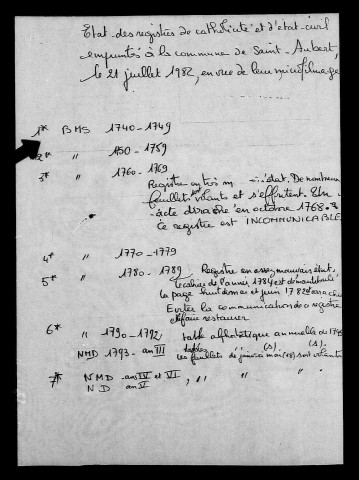 Etat des registres de catholicité et d'état-civil
empruntés à la commune de Saint-Aubert,
le 21 juillet 1982, en vue de leur microfilmage
1* BMS 1740-1749
2* " 1750-1759
3* " 1760-1769
Registre en très m état. De nombreux
feuillets volants et s'effritent. Un
acte arraché en octobre 1768.
Ce registre est INCOMMUNICABLE
4* " 1770-1779
5* " 1780-1789 Registre en assez mauvais état,
le cahier de l'année 1784 est
la page juin 1782
Eviter la communication de ce registre
à faire restaurer
6* " 1790-1792, table alphabétique annuelle de
NMD 1793-an III tables (s) (s).
les feuillets de sont volants
7* NMD an IV et VI, " " " "
ND an V